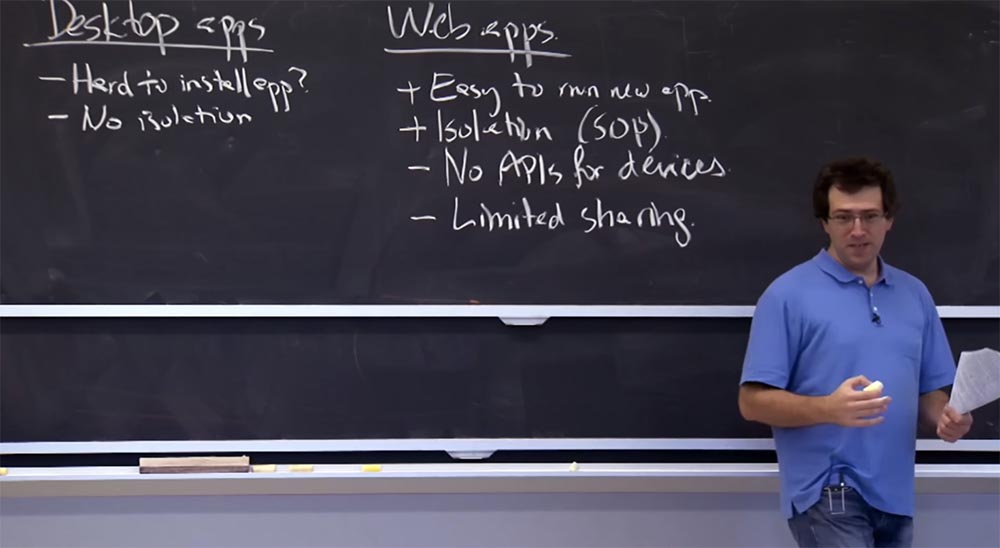 Desktop apps
- Hard to install app?
- No isolation
Web apps.
+ Easy to run new app.
+ Isolation (SOP).
- No APIs for devices.
- Limited sharing.